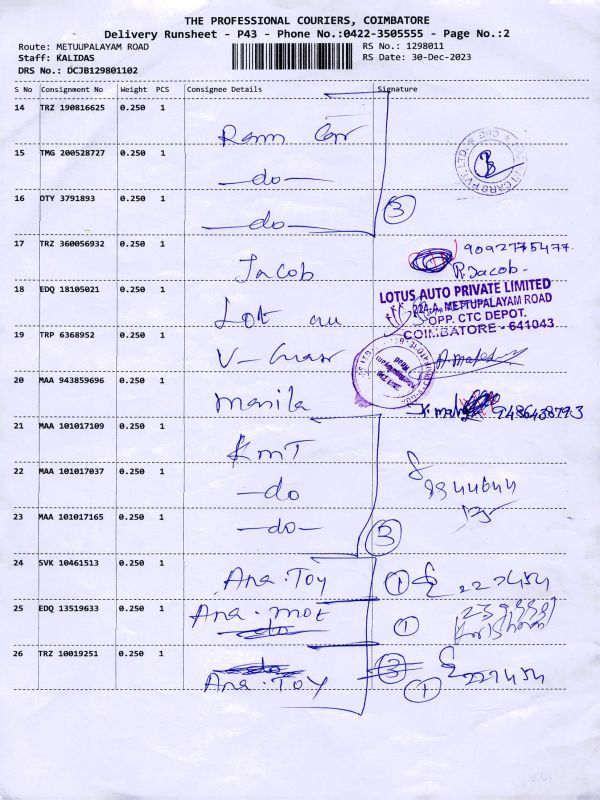 THE PROFESSIONAL COURIERS, COIMBATORE
Delivery Runsheet - P43 - Phone No.:0422-3505555 - Page No.:2
Route: METUUPALAYAM ROAD
Staff: KALIDAS
DRS No.: DCJB129801102
RS No.: 1298011
RS Date: 30-Dec-2023
S No Consignment No Weight PCS Consignee Details Signature
14 TRZ 190816625 0.250 1
Ram Car
15 TMG 200528727 0.250 1
-do-
16 OTY 3791893 0.250 1
-do-
3
17 TRZ 360056932 0.250 1
Jacob
9092775477
P. Jacob
18 EDQ 18105021 0.250 1
Lot au
LOTUS AUTO PRIVATE LIMITED
224-A, METTUPALAYAM ROAD
OPP. CTC DEPOT.
COIMBATORE - 641043
19 TRP 6368952 0.250 1
V-Guard
20 MAA 943859696 0.250 1
Manila
21 MAA 101017109 0.250 1
KMT
22 MAA 101017037 0.250 1
-do
23 MAA 101017165 0.250 1
-do-
3
24 SVK 10461513 0.250 1
Ana. Toy
1
25 EDQ 13519633 0.250 1
Ana. mot
1
26 TRZ 10019251 0.250 1
Ana. Toy
1